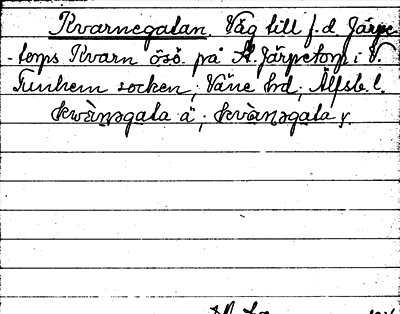 Kvarnegatan. Väg till f.d. Järpe
-torps Kvarn ösö. på St. Järpetorp i V.
Tunhem socken; Väne hd; Älfsb. l.
kwànəgata ä; kvànəgata y.